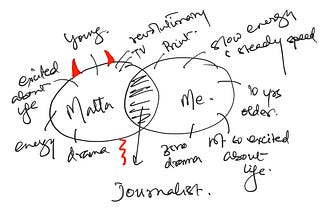 young.
revolutionary
TV
Print.
slow energy
& steady speed
excited
about
life
Matta
Me.
10 yrs
older.
energy
drama
zero
drama
not so excited
about
life.
Journalist.